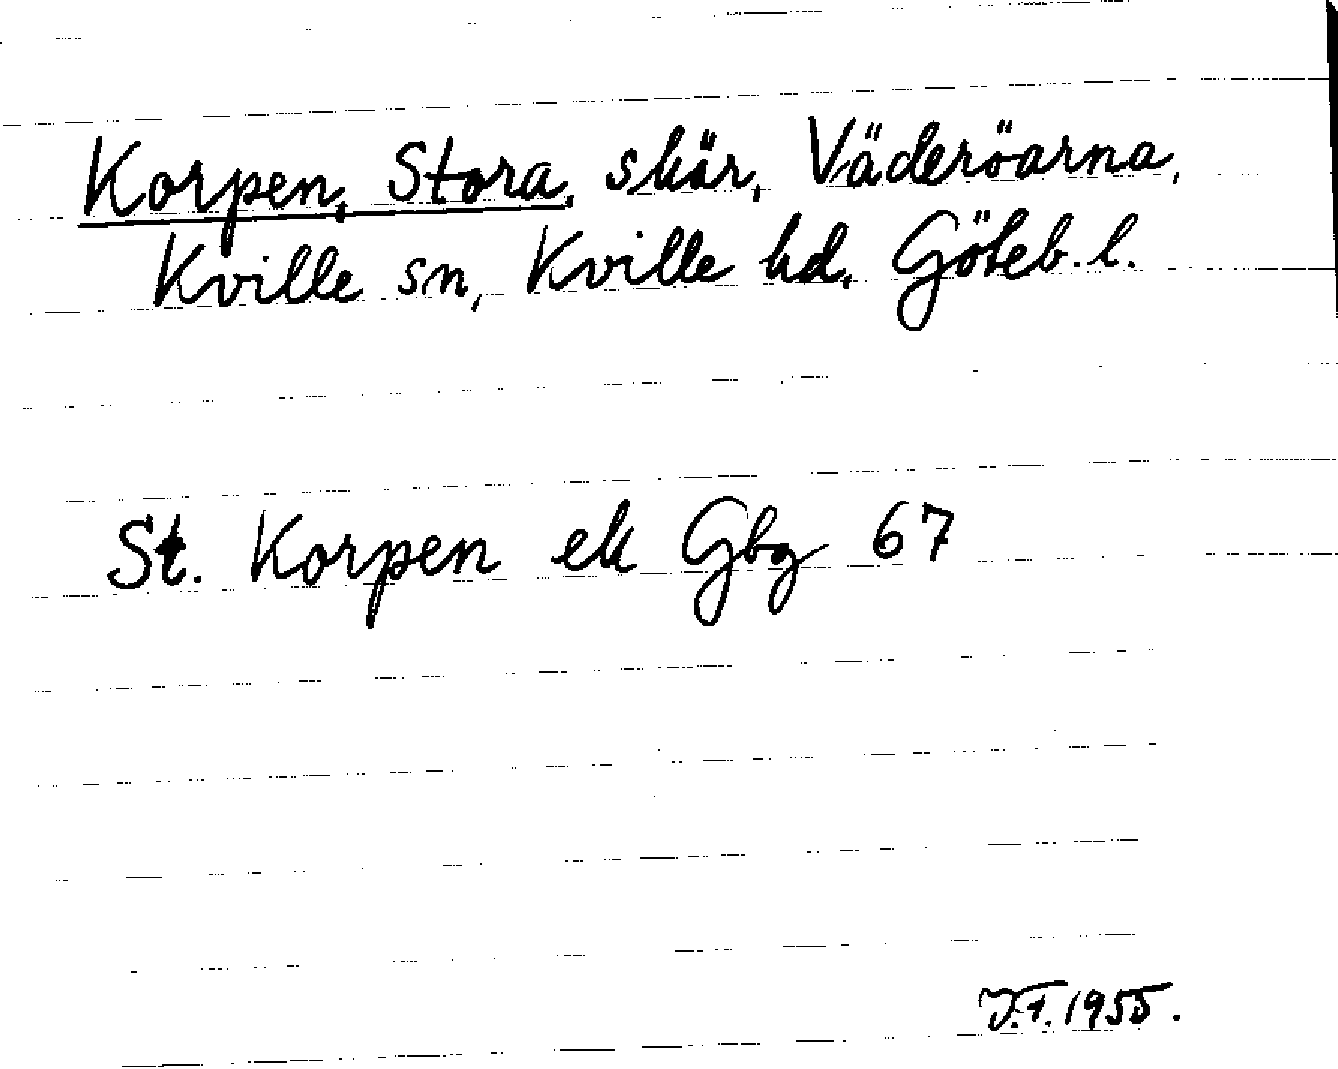 Korpen, Stora, skär, Väderöarna,
Kville sn, Kville hd, Göteb. l.
St. Korpen ek Gbg 67
J.F. 1955.